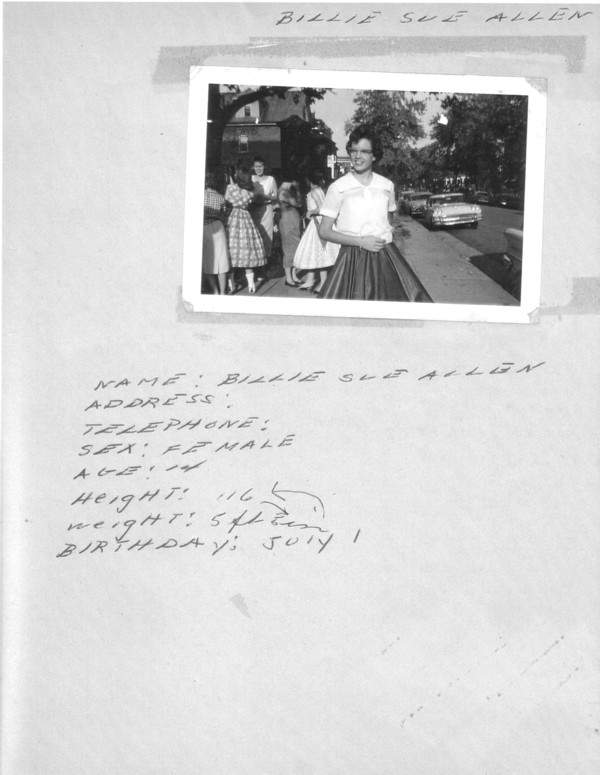 BILLIE SUE ALLEN
NAME: BILLIE SUE ALLEN
ADDRESS:
TELEPHONE:
SEX: FEMALE
AGE: 14
HEIGHT: 116
WEIGHT: 5 ft in
BIRTHDAY: JULY 1